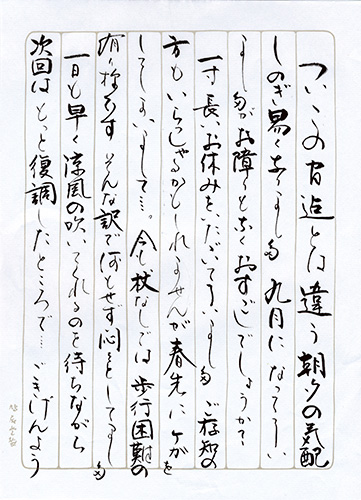 ついこの間迄とは違う朝夕の気配
しのぎ易くなりました 九月になってしまい
ましたがお障りもなくおすごしでしょうか?
一寸長いお休みをいただいてしまいました ご存知の
方もいらっしゃるかもしれませんが春先にケガを
してしまいまして…。今も杖なしでは歩行困難の
有り様です そんな訳で何もせず悶々としてました
一日も早く涼風の吹いてくれるのを待ちながら
次回はもっと復調したところで…ごきげんよう